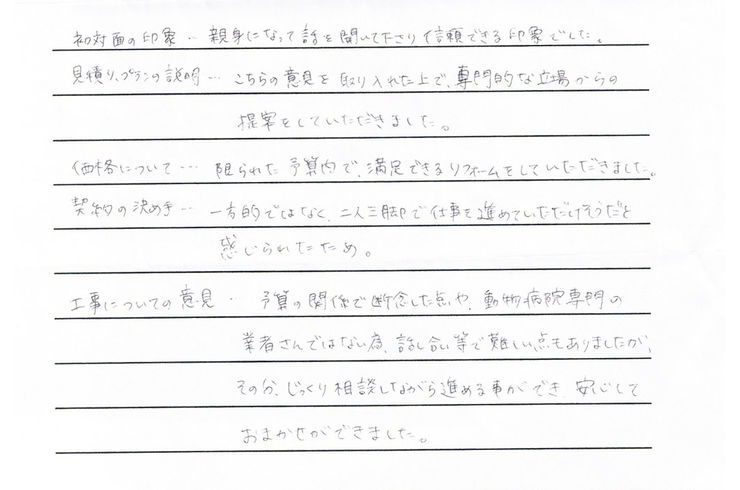 初対面の印象… 親身になって話を聞いて下さり信頼できる印象でした。
見積り、プランの説明… こちらの意見を取り入れた上で、専門的な立場からの
提案をしていただきました。
価格について… 限られた予算内で、満足できるリフォームをしていただきました。
契約の決め手… 一方的ではなく、二人三脚で仕事を進めていただけそうだと
感じられたため。
工事についての意見… 予算の関係で断念した点や、動物病院専門の
業者さんではない為、話し合い等で難しい点もありましたが、
その分、じっくり相談しながら進める事ができ、安心して
おまかせができました。